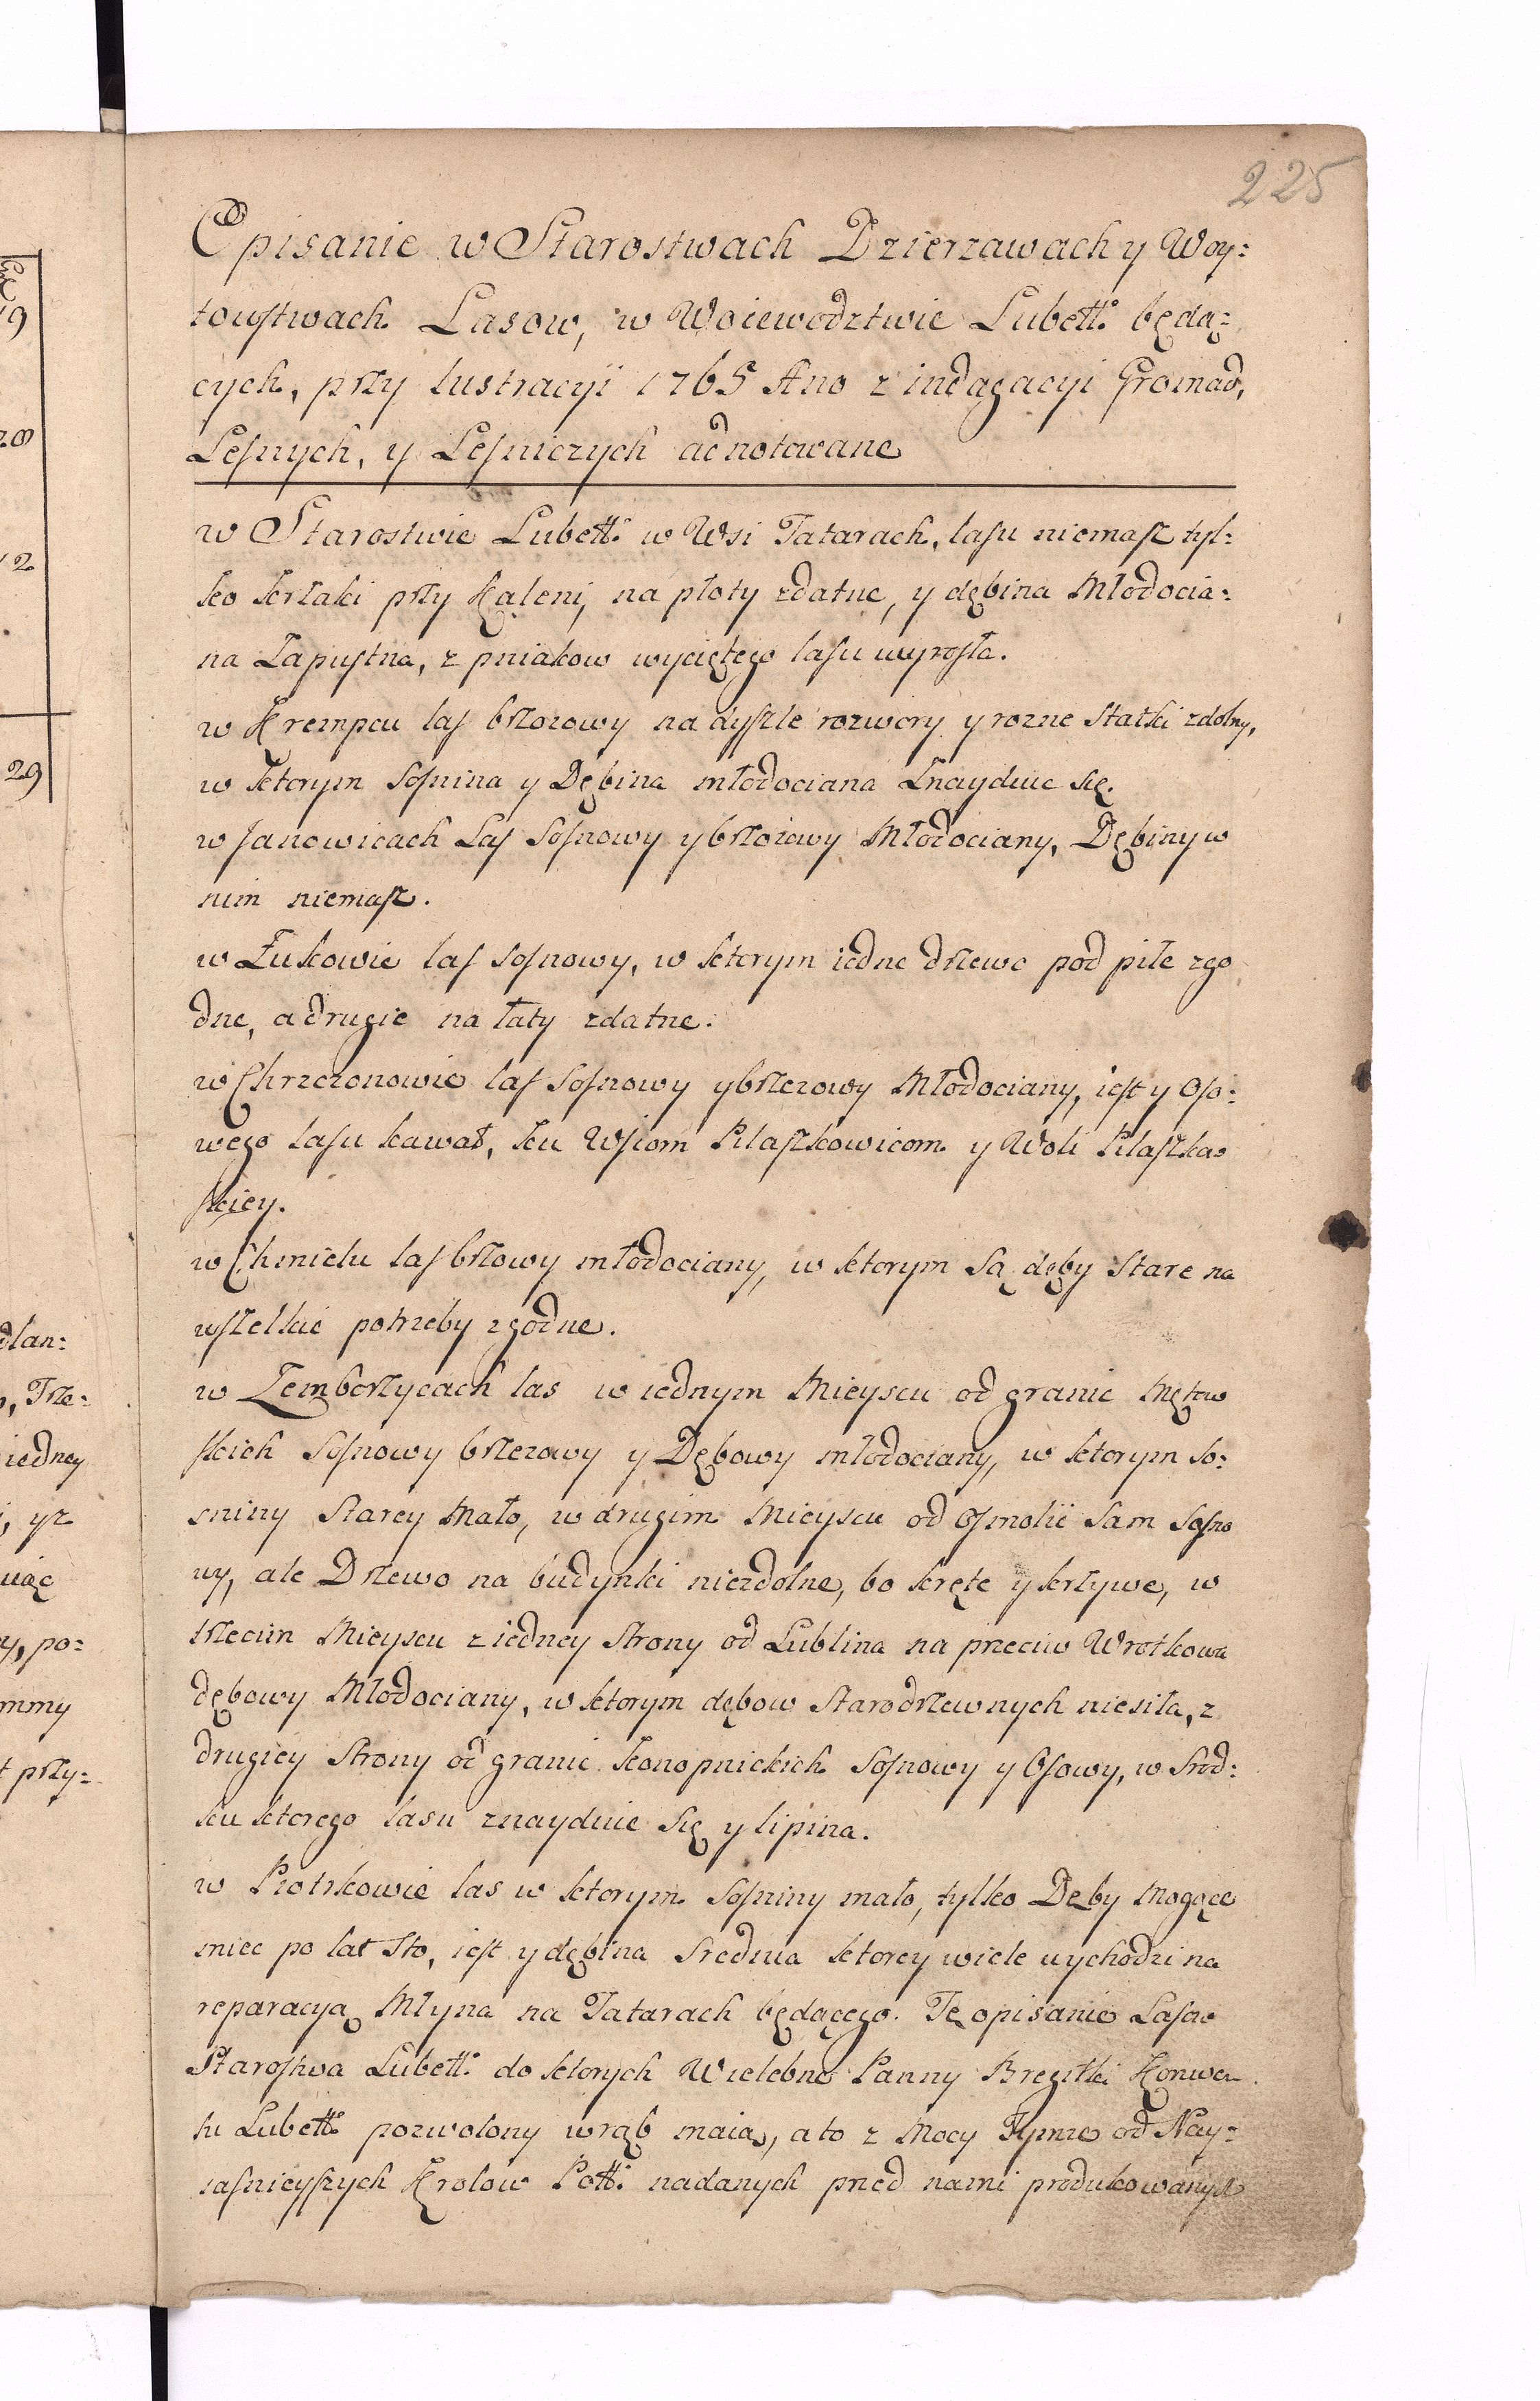 225
Opisanie w Starostwach Dzierzawach y Woy:
towstwach Lasow, w Woiewodztwie Lubett: będą:
cych, przy lustracyi 1765 Ano z indagacyi Gromad,
Lesnych, y Lesniczych adnotowane
w Starostwie Lubett: w Wsi Tatarach, lasu niemasz tyl:
ko krzaki przy Kaleni, na płoty zdatne, y dębina Młodocia:
na Zapustna, z pniakow wyciętego lasu wyrosła.
w Krempcu las brzozowy na dyszle rozwory y rozne statki zdolny,
w ktorym Sosnina y Dębina młodociana znayduie się.
w Janowicach Las Sosnowy y brzozowy Młodociany, Dębiny w
nim niemasz.
w Żukowie las sosnowy, w ktorym iedne drzewo pod piłe zgo
dne, a drugie na łaty zdatne.
w Chrzczonowie las Sosnowy y brzezowy Młodociany, iest y Oso:
wego lasu kawał, ku Wsiom Pilaszkowicom y Woli Pilaszko
skiey.
w Chmielu las brzowy młodociany, w ktorym są dęby stare na
wszelkie potrzeby zgodne.
w Zemborzycach las w iednym Mieyscu od granic Mętow
skich Sosnowy brzezowy y Dębowy młodociany, w ktorym so:
sniny starey Mało, w drugim Mieyscu od Osmolic sam Sosno
wy, ale Drzewo na budynki niezdolne, bo kręte y krzywe, w
trzecim Mieyscu z iedney strony od Lublina na przeciw Wrotkowa
dębowy Młodociany, w ktorym dębow starodrzewnych niesiła, z
drugiey strony od granic Konopnickich Sosnowy y Osowy, w srod:
ku ktorego lasu znayduie się y lipina.
w Piotrkowie las w ktorym Sosniny mało, tylko Dęby Mogące
miec po lat sto, iest y dębina srednia ktorey wiele wychodzi na
reparacyą Młyna na Tatarach będącego. Te opisanie Lasow
Starostwa Lubett: do ktorych Wielebne Panny Bregitki Konwen
tu Lubett: pozwolony wrąb maią, a to z Mocy od Nay:
iasnieyszych Krolow Pott: nadanych przed nami produkowanych
19
28
12
29
dlan:
, Trze:
iedney
, yz
wiąc
y, po:
mmy
t przy: